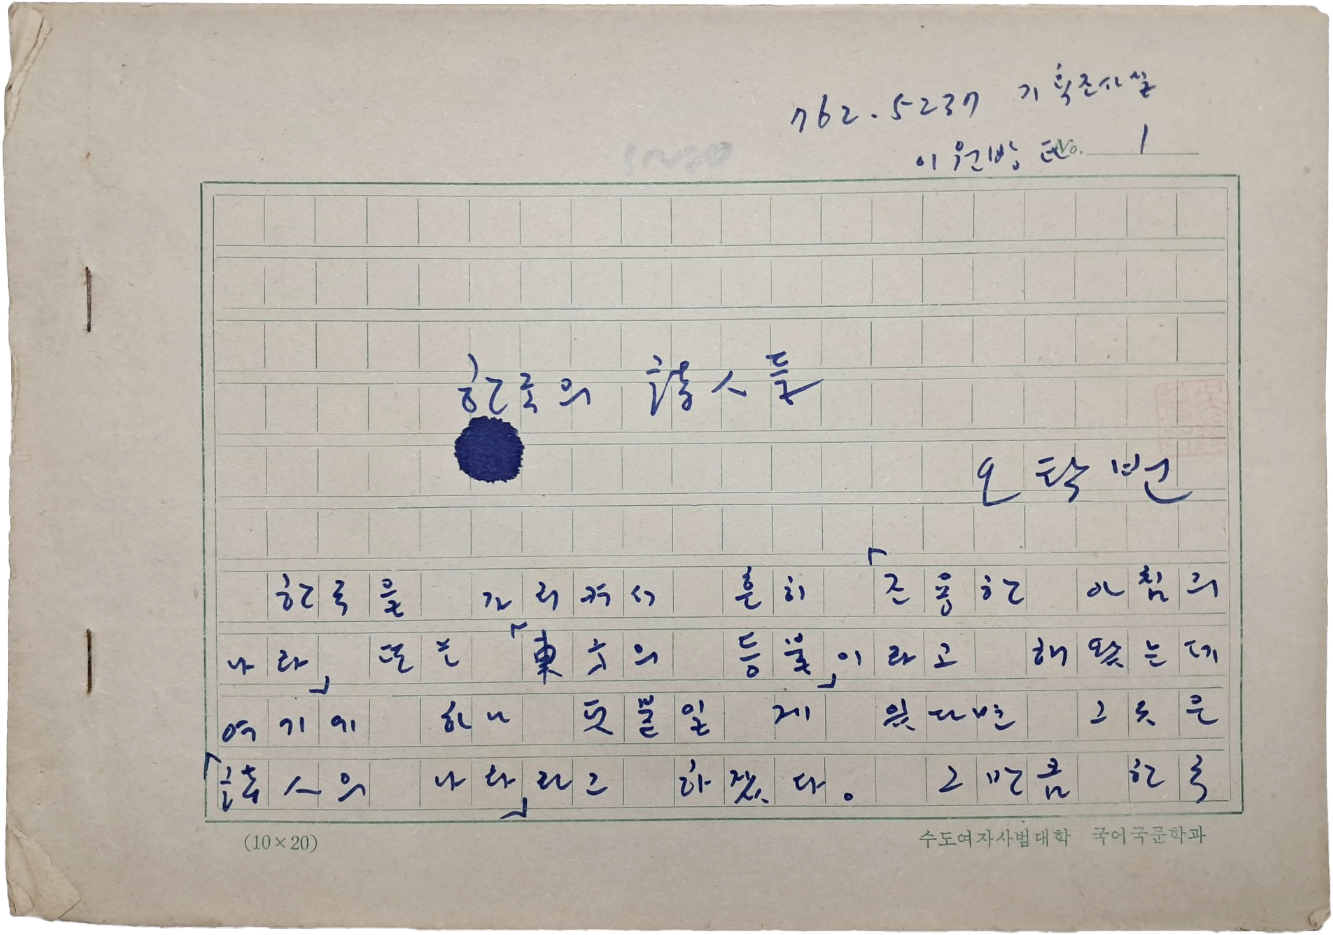 762.5237 기획조사실
이원방
No. 1
한국의 詩人들
오탁번
한국을 가리켜서 흔히 「조용한 아침의
나라」 또는 「東方의 등불」이라고 해 왔는데
여기에 하나 덧붙일 게 있다면 그것은
「詩人의 나라」라고 하겠다。 그만큼 한국
(10×20)
수도여자사범대학 국어국문학과